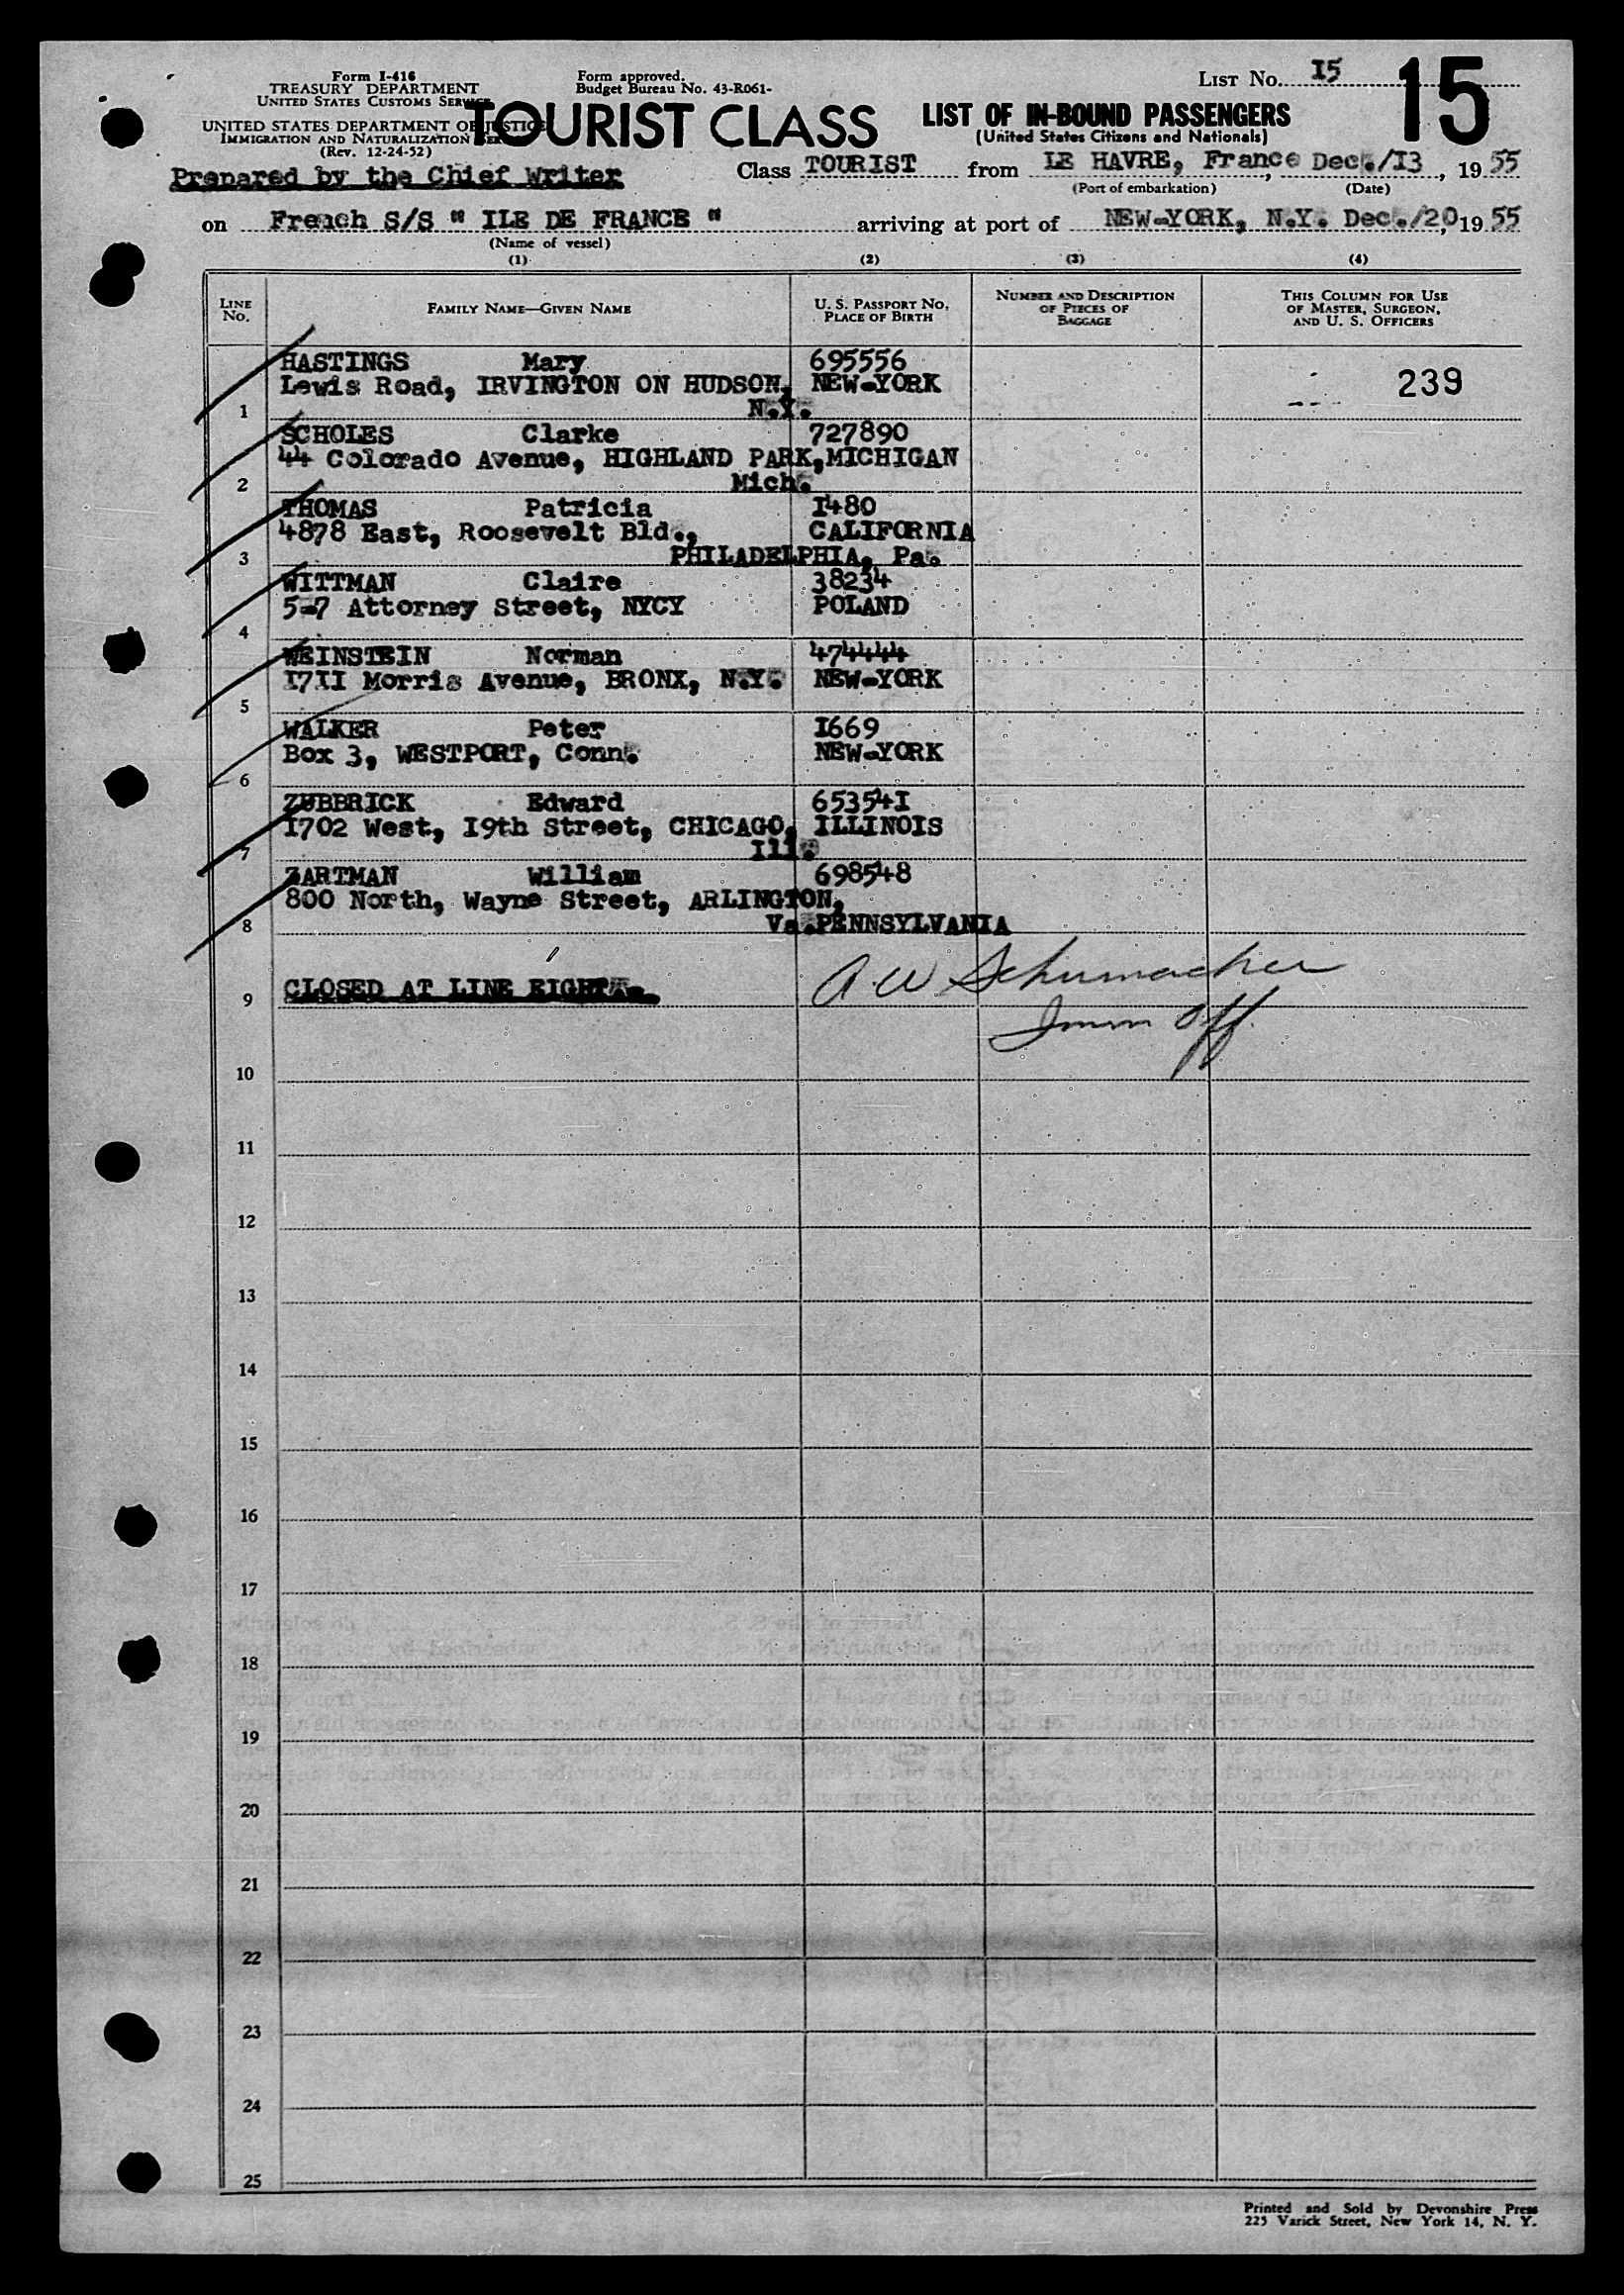 Form I-416
TREASURY DEPARTMENT
UNITED STATES CUSTOMS SERVICE
UNITED STATES DEPARTMENT OF JUSTICE
IMMIGRATION AND NATURALIZATION SER
(Rev. 12-24-52)
Form approved.
Budget Bureau No. 43-R061-
TOURIST CLASS
LIST OF IN-BOUND PASSENGERS
(United States Citizens and Nationals)
LIST NO. I5
15
Prepared by the Chief Writer
Class TOURIST from LE HAVRE, France, Dec./I3, 1955
(Port of embarkation) (Date)
on French S/S " ILE DE FRANCE " arriving at port of NEW-YORK, N.Y. Dec./20, 1955
(Name of vessel)
(1) (2) (3) (4)
LINE NO. FAMILY NAME—GIVEN NAME U. S. PASSPORT NO. PLACE OF BIRTH NUMBER AND DESCRIPTION OF PIECES OF BAGGAGE THIS COLUMN FOR USE OF MASTER, SURGEON, AND U. S. OFFICERS
HASTINGS Mary 695556
Lewis Road, IRVINGTON ON HUDSON, NEW-YORK 239
1 N.Y.
SCHOLES Clarke 727890
44 Colorado Avenue, HIGHLAND PARK, MICHIGAN
2 Mich.
THOMAS Patricia I480
4878 East, Roosevelt Bld., CALIFORNIA
3 PHILADELPHIA, Pa.
WITTMAN Claire 38234
5-7 Attorney Street, NYCY POLAND
4
WEINSTEIN Norman 474444
I7II Morris Avenue, BRONX, N.Y. NEW-YORK
5
WALKER Peter I669
Box 3, WESTPORT, Conn. NEW-YORK
6
ZUBBRICK Edward 65354I
I702 West, I9th Street, CHICAGO, ILLINOIS
7 Ill.
ZARTMAN William 698548
800 North, Wayne Street, ARLINGTON,
8 Va. PENNSYLVANIA
9 CLOSED AT LINE EIGHT A W Schumacher
Imm Off.
10
11
12
13
14
15
16
17
18
19
20
21
22
23
24
25
Printed and Sold by Devonshire Press
225 Varick Street, New York 14, N. Y.